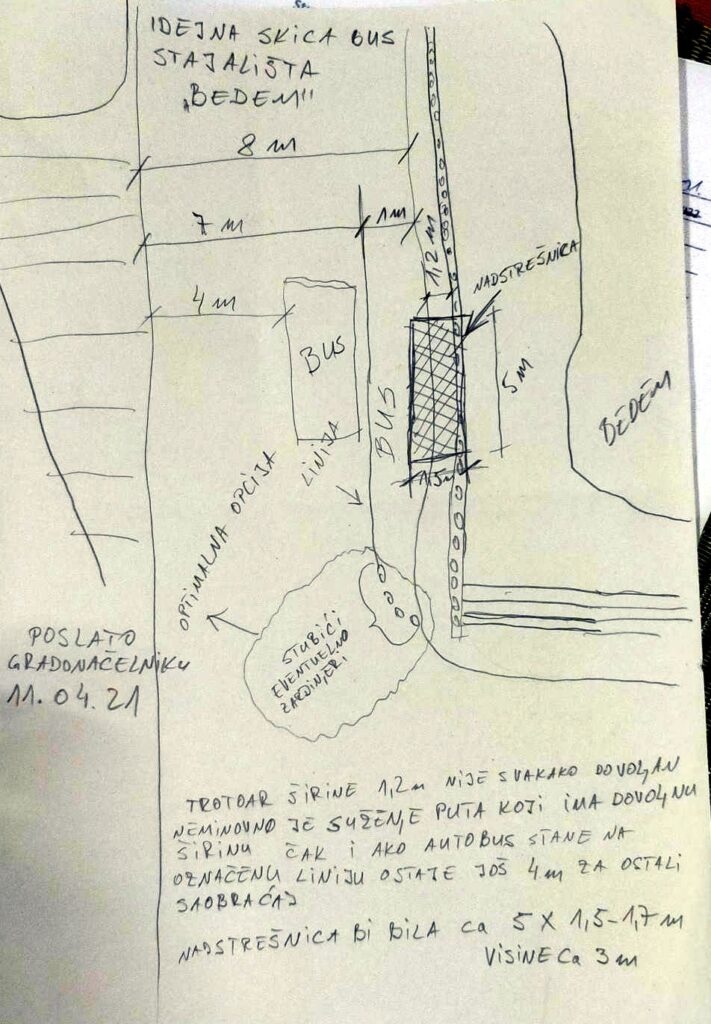 IDEJNA SKICA BUS
STAJALIŠTA
„BEDEM"
8 m
7 m
1m
1,2 m
NADSTREŠNICA
4 m
BUS
BUS
LINIJA
5 m
1,5m
BEDEM
OPTIMALNA OPCIJA
STUBIĆI
EVENTUELNO
ŽARDINJERI
POSLATO
GRADONAČELNIKU
11.04.21
TROTOAR ŠIRINE 1,2m NIJE SVAKAKO DOVOLJAN
NEMINOVNO JE SUŽENJE PUTA KOJI IMA DOVOLJNU
ŠIRINU ČAK I AKO AUTOBUS STANE NA
OZNAČENU LINIJU OSTAJE JOŠ 4m ZA OSTALI
SAOBRAĆAJ
NADSTREŠNICA BI BILA ca 5 X 1,5-1,7 m
VISINE Ca 3 m